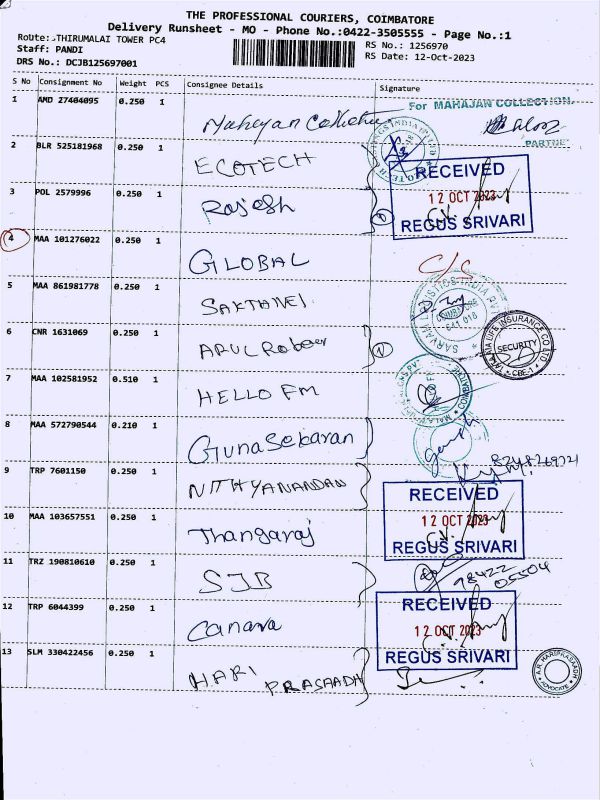 THE PROFESSIONAL COURIERS, COIMBATORE
Delivery Runsheet - MO - Phone No.:0422-3505555 - Page No.:1
Route: THIRUMALAI TOWER PC4
RS No.: 1256970
Staff: PANDI
RS Date: 12-Oct-2023
DRS No.: DCJB125697001
S No Consignment No Weight PCS Consignee Details Signature
1 AMD 27404095 0.250 1 Mahajan Collection
For MAHAJAN COLLECTION
PARTNER
2 BLR 525181968 0.250 1 ECOTECH
RECEIVED
12 OCT 2023
REGUS SRIVARI
3 POL 2579996 0.250 1 Rajesh
4 MAA 101276022 0.250 1 GLOBAL C/C
5 MAA 861981778 0.250 1
641 018
6 CNR 1631069 0.250 1
INSURANCE CO LTD
SECURITY
CBE-1
7 MAA 102581952 0.510 1 HELLO FM
8 MAA 572790544 0.210 1 GunaSekaran
9 TRP 7601150 0.250 1 NITHYANANDAN
RECEIVED
12 OCT 2023
REGUS SRIVARI
10 MAA 103657551 0.250 1 Thangaraj
11 TRZ 190810610 0.250 1 SIB
98422
05504
12 TRP 6044399 0.250 1 Canara
RECEIVED
12 OCT 2023
REGUS SRIVARI
13 SLM 330422456 0.250 1 HARI PRASAADH
ADVOCATE